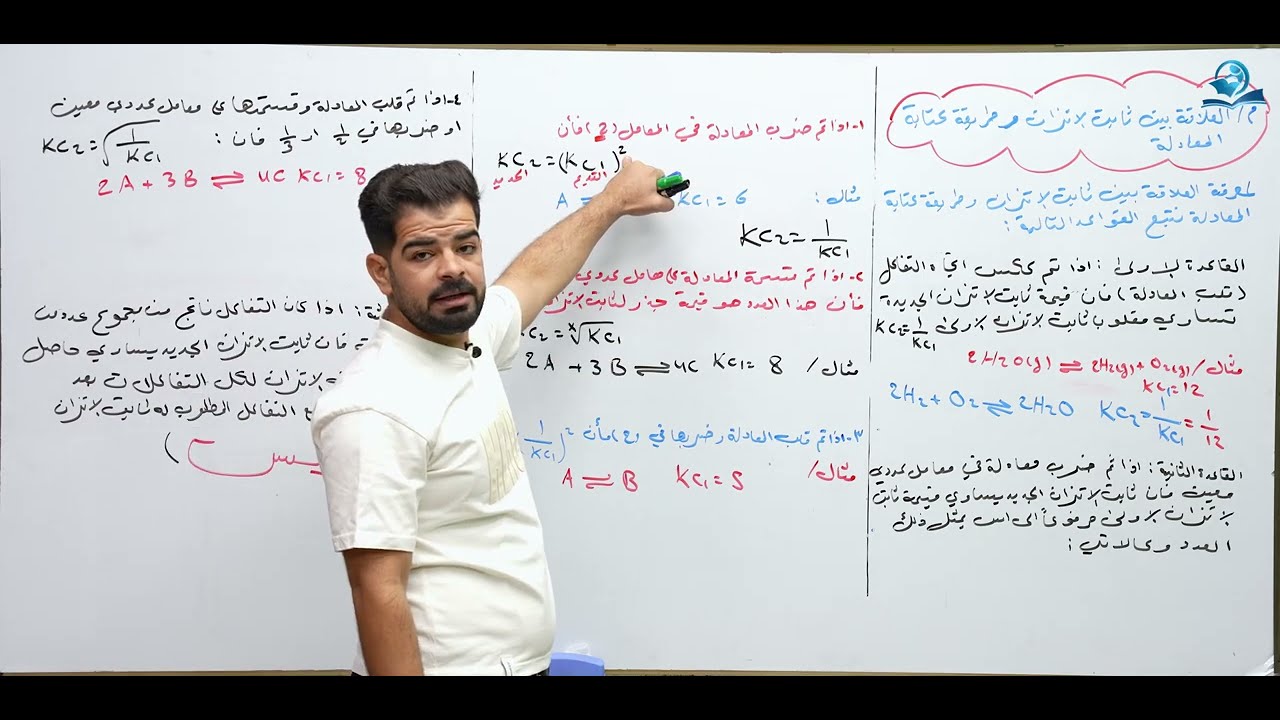 م/ العلاقة بين ثابت الاتزان وطريقة كتابة
المعادلة
لمعرفة العلاقة بين ثابت الاتزان وطريقة كتابة
المعادلة نتبع القواعد التالية :
القاعدة الاولى : اذا تم عكس اتجاه التفاعل
(قلب المعادلة) فان قيمة ثابت الاتزان الجديدة
تساوي مقلوب ثابت الاتزان الاولى KC2=1/KC1
مثال/ 2H2O(g) ⇌ 2H2(g)+O2(g)
KC1=12
2H2+O2⇌2H2O KC2=1/KC1=1/12
القاعدة الثانية : اذا تم ضرب معادلة في معامل عددي
معين فان ثابت الاتزان الجديد يساوي قيمة ثابت
الاتزان الاولى مرفوعاً الى اس يمثل ذلك
العدد وكالاتي :
١- اذا تم ضرب المعادلة في المعامل (2) فأن
KC2=(KC1)2
الجديد القديم
مثال : A ⇌ KC1=6
KC2=1/KC1
٢- اذا تم قسمة المعادلة على معامل عددي
فأن هذا العدد هو قيمة جذر لثابت الاتزان
C2=x√KC1
مثال/ 2A+3B⇌4C KC1=8
٣- اذا تم قلب المعادلة وضربها في (2) فأن 1/KC1)2
مثال/ A⇌B KC1=5
٤- اذا تم قلب المعادلة وقسمتها على معامل عددي معين
او ضربها في 1/2 او 1/3 فان : KC2=√1/KC1
2A+3B⇌4C KC1=8
: اذا كان التفاعل ناتج من مجموع عدد من
فان ثابت الاتزان الجديد يساوي حاصل
الاتزان لكل التفاعلات بعد
التفاعل المطلوب له ثابت الاتزان